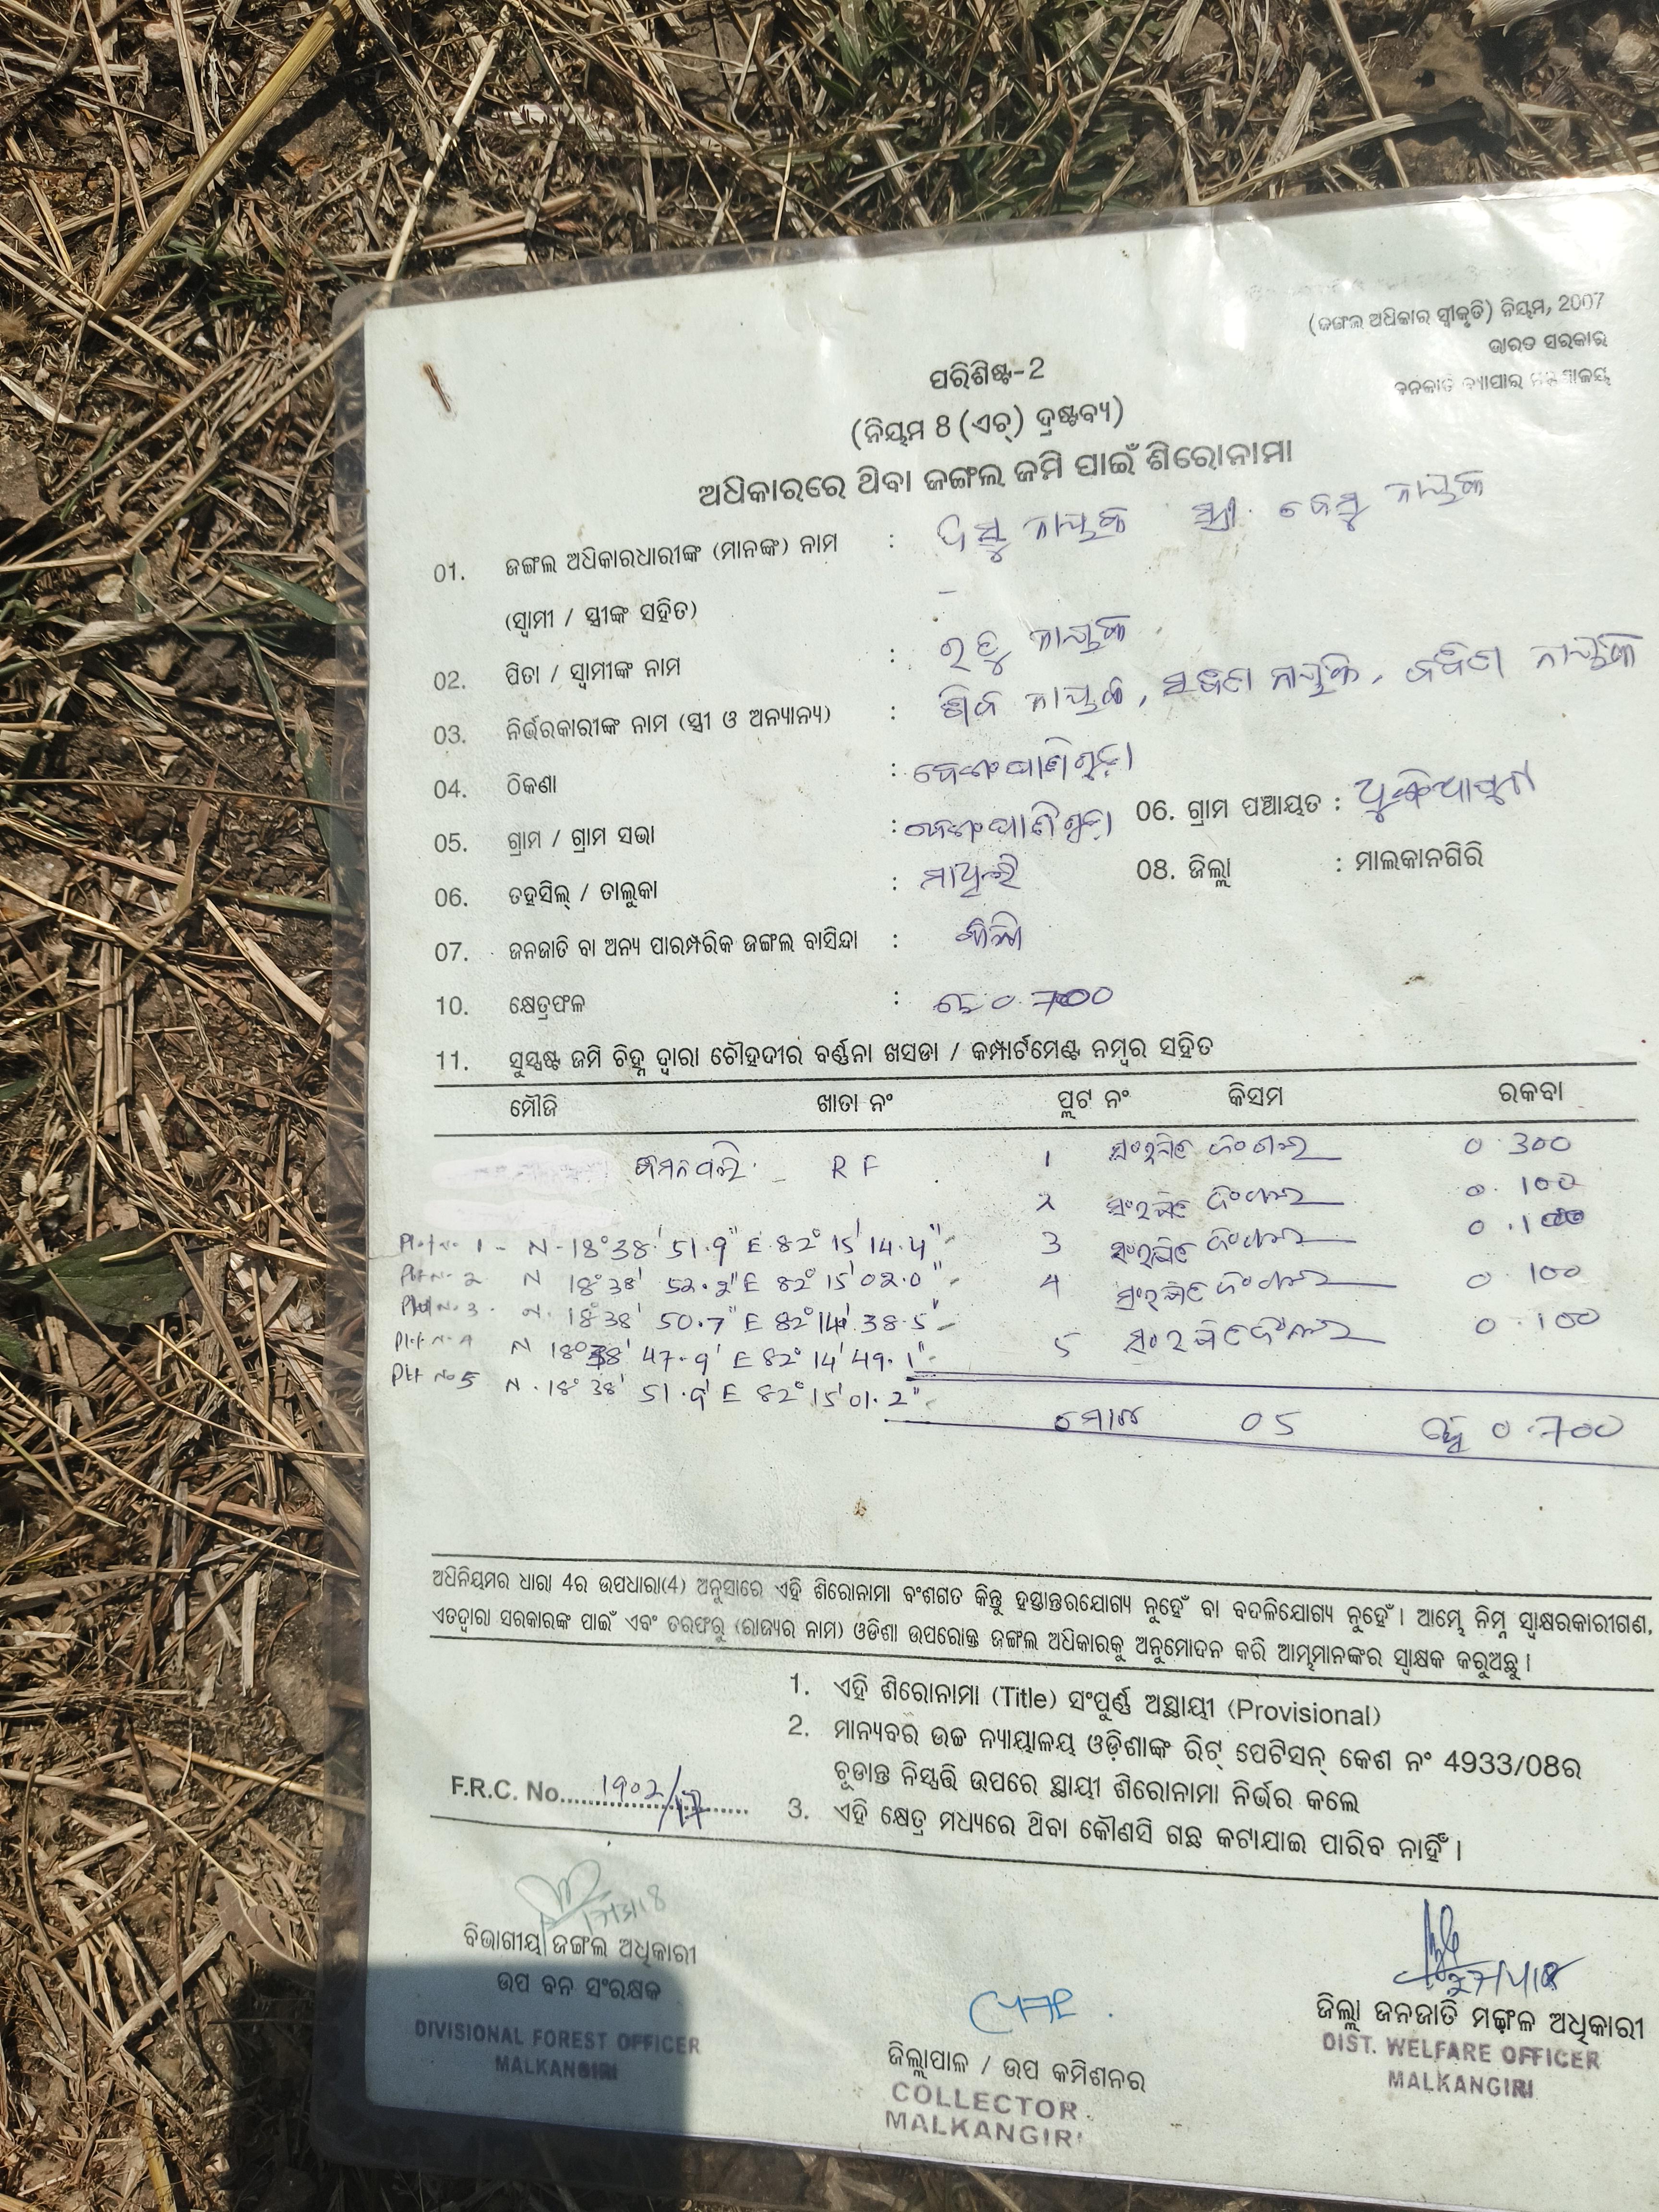 (ଜଙ୍ଗଲ ଅଧିକାର ସ୍ୱୀକୃତି) ନିୟମ, 2007
ଭାରତ ସରକାର
ପରିଶିଷ୍ଟ-2
(ନିୟମ 8 (ଏଚ୍) ଦ୍ରଷ୍ଟବ୍ୟ)
ଅଧିକାରରେ ଥିବା ଜଙ୍ଗଲ ଜମି ପାଇଁ ଶିରୋନାମା
01. ଜଙ୍ଗଲ ଅଧିକାରଧାରୀଙ୍କ (ମାନଙ୍କ) ନାମ : ନାୟକ ସ୍ତ୍ରୀ. ନାୟକ
(ସ୍ୱାମୀ / ସ୍ତ୍ରୀଙ୍କ ସହିତ)
02. ପିତା / ସ୍ୱାମୀଙ୍କ ନାମ : ନାୟକ
03. ନିର୍ଭରକାରୀଙ୍କ ନାମ (ସ୍ତ୍ରୀ ଓ ଅନ୍ୟାନ୍ୟ) : ନାୟକ, ନାୟକ, ନାୟକ
04. ଠିକଣା :
05. ଗ୍ରାମ / ଗ୍ରାମ ସଭା : 06. ଗ୍ରାମ ପଞ୍ଚାୟତ :
06. ତହସିଲ୍ / ତାଲୁକା : 08. ଜିଲ୍ଲା : ମାଲକାନଗିରି
07. ଜନଜାତି ବା ଅନ୍ୟ ପାରମ୍ପରିକ ଜଙ୍ଗଲ ବାସିନ୍ଦା :
10. କ୍ଷେତ୍ରଫଳ : ହେ 0.700
11. ସୁସ୍ପଷ୍ଟ ଜମି ଚିହ୍ନ ଦ୍ୱାରା ଚୌହଦୀର ବର୍ଣ୍ଣନା ଖସଡା / କମ୍ପାର୍ଟମେଣ୍ଟ ନମ୍ବର ସହିତ
ମୌଜି ଖାତା ନଂ ପ୍ଲଟ ନଂ କିସମ ରକବା
RF 1 ସଂରକ୍ଷିତ ଜଂଗଲ 0.300
2 ସଂରକ୍ଷିତ ଜଂଗଲ 0.100
Plot No 1 - N-18°38'51.9" E-82°15'14.4" 3 ସଂରକ୍ଷିତ ଜଂଗଲ 0.100
Plot No 2 N 18°38' 52.2" E 82°15'02.0" 4 ସଂରକ୍ଷିତ ଜଂଗଲ 0.100
Plot No. 3. N. 18°38' 50.7" E 82°14'.38.5" 5 ସଂରକ୍ଷିତ ଜଂଗଲ 0.100
Plot No 4 N 18°38' 47.9' E 82°14'49.1"
Plot No 5 N. 18°38' 51.9' E 82°15'01.2"
ମୋଟ 05 0.700
ଅଧିନିୟମର ଧାରା 4ର ଉପଧାରା(4) ଅନୁସାରେ ଏହି ଶିରୋନାମା ବଂଶଗତ କିନ୍ତୁ ହସ୍ତାନ୍ତରଯୋଗ୍ୟ ନୁହେଁ ବା ବଦଳିଯୋଗ୍ୟ ନୁହେଁ । ଆମ୍ଭେ ନିମ୍ନ ସ୍ୱାକ୍ଷରକାରୀଗଣ,
ଏତଦ୍ୱାରା ସରକାରଙ୍କ ପାଇଁ ଏବଂ ତରଫରୁ (ରାଜ୍ୟର ନାମ) ଓଡିଶା ଉପରୋକ୍ତ ଜଙ୍ଗଲ ଅଧିକାରକୁ ଅନୁମୋଦନ କରି ଆମ୍ଭମାନଙ୍କର ସ୍ୱାକ୍ଷକ କରୁଅଛୁ ।
1. ଏହି ଶିରୋନାମା (Title) ସଂପୂର୍ଣ ଅସ୍ଥାୟୀ (Provisional)
2. ମାନ୍ୟବର ଉଚ୍ଚ ନ୍ୟାୟାଳୟ ଓଡ଼ିଶାଙ୍କ ରିଟ୍ ପେଟିସନ୍ କେଶ ନଂ 4933/08ର
ଚୂଡାନ୍ତ ନିସ୍ପତ୍ତି ଉପରେ ସ୍ଥାୟୀ ଶିରୋନାମା ନିର୍ଭର କଲେ
F.R.C. No. 1902/17
3. ଏହି କ୍ଷେତ୍ର ମଧ୍ୟରେ ଥିବା କୌଣସି ଗଛ କଟାଯାଇ ପାରିବ ନାହିଁ ।
ବିଭାଗୀୟ ଜଙ୍ଗଲ ଅଧିକାରୀ
ଉପ ବନ ସଂରକ୍ଷକ
DIVISIONAL FOREST OFFICER
MALKANGIRI
ଜିଲ୍ଲାପାଳ / ଉପ କମିଶନର
COLLECTOR
MALKANGIRI
ଜିଲ୍ଲା ଜନଜାତି ମଙ୍ଗଳ ଅଧିକାରୀ
DIST. WELFARE OFFICER
MALKANGIRI